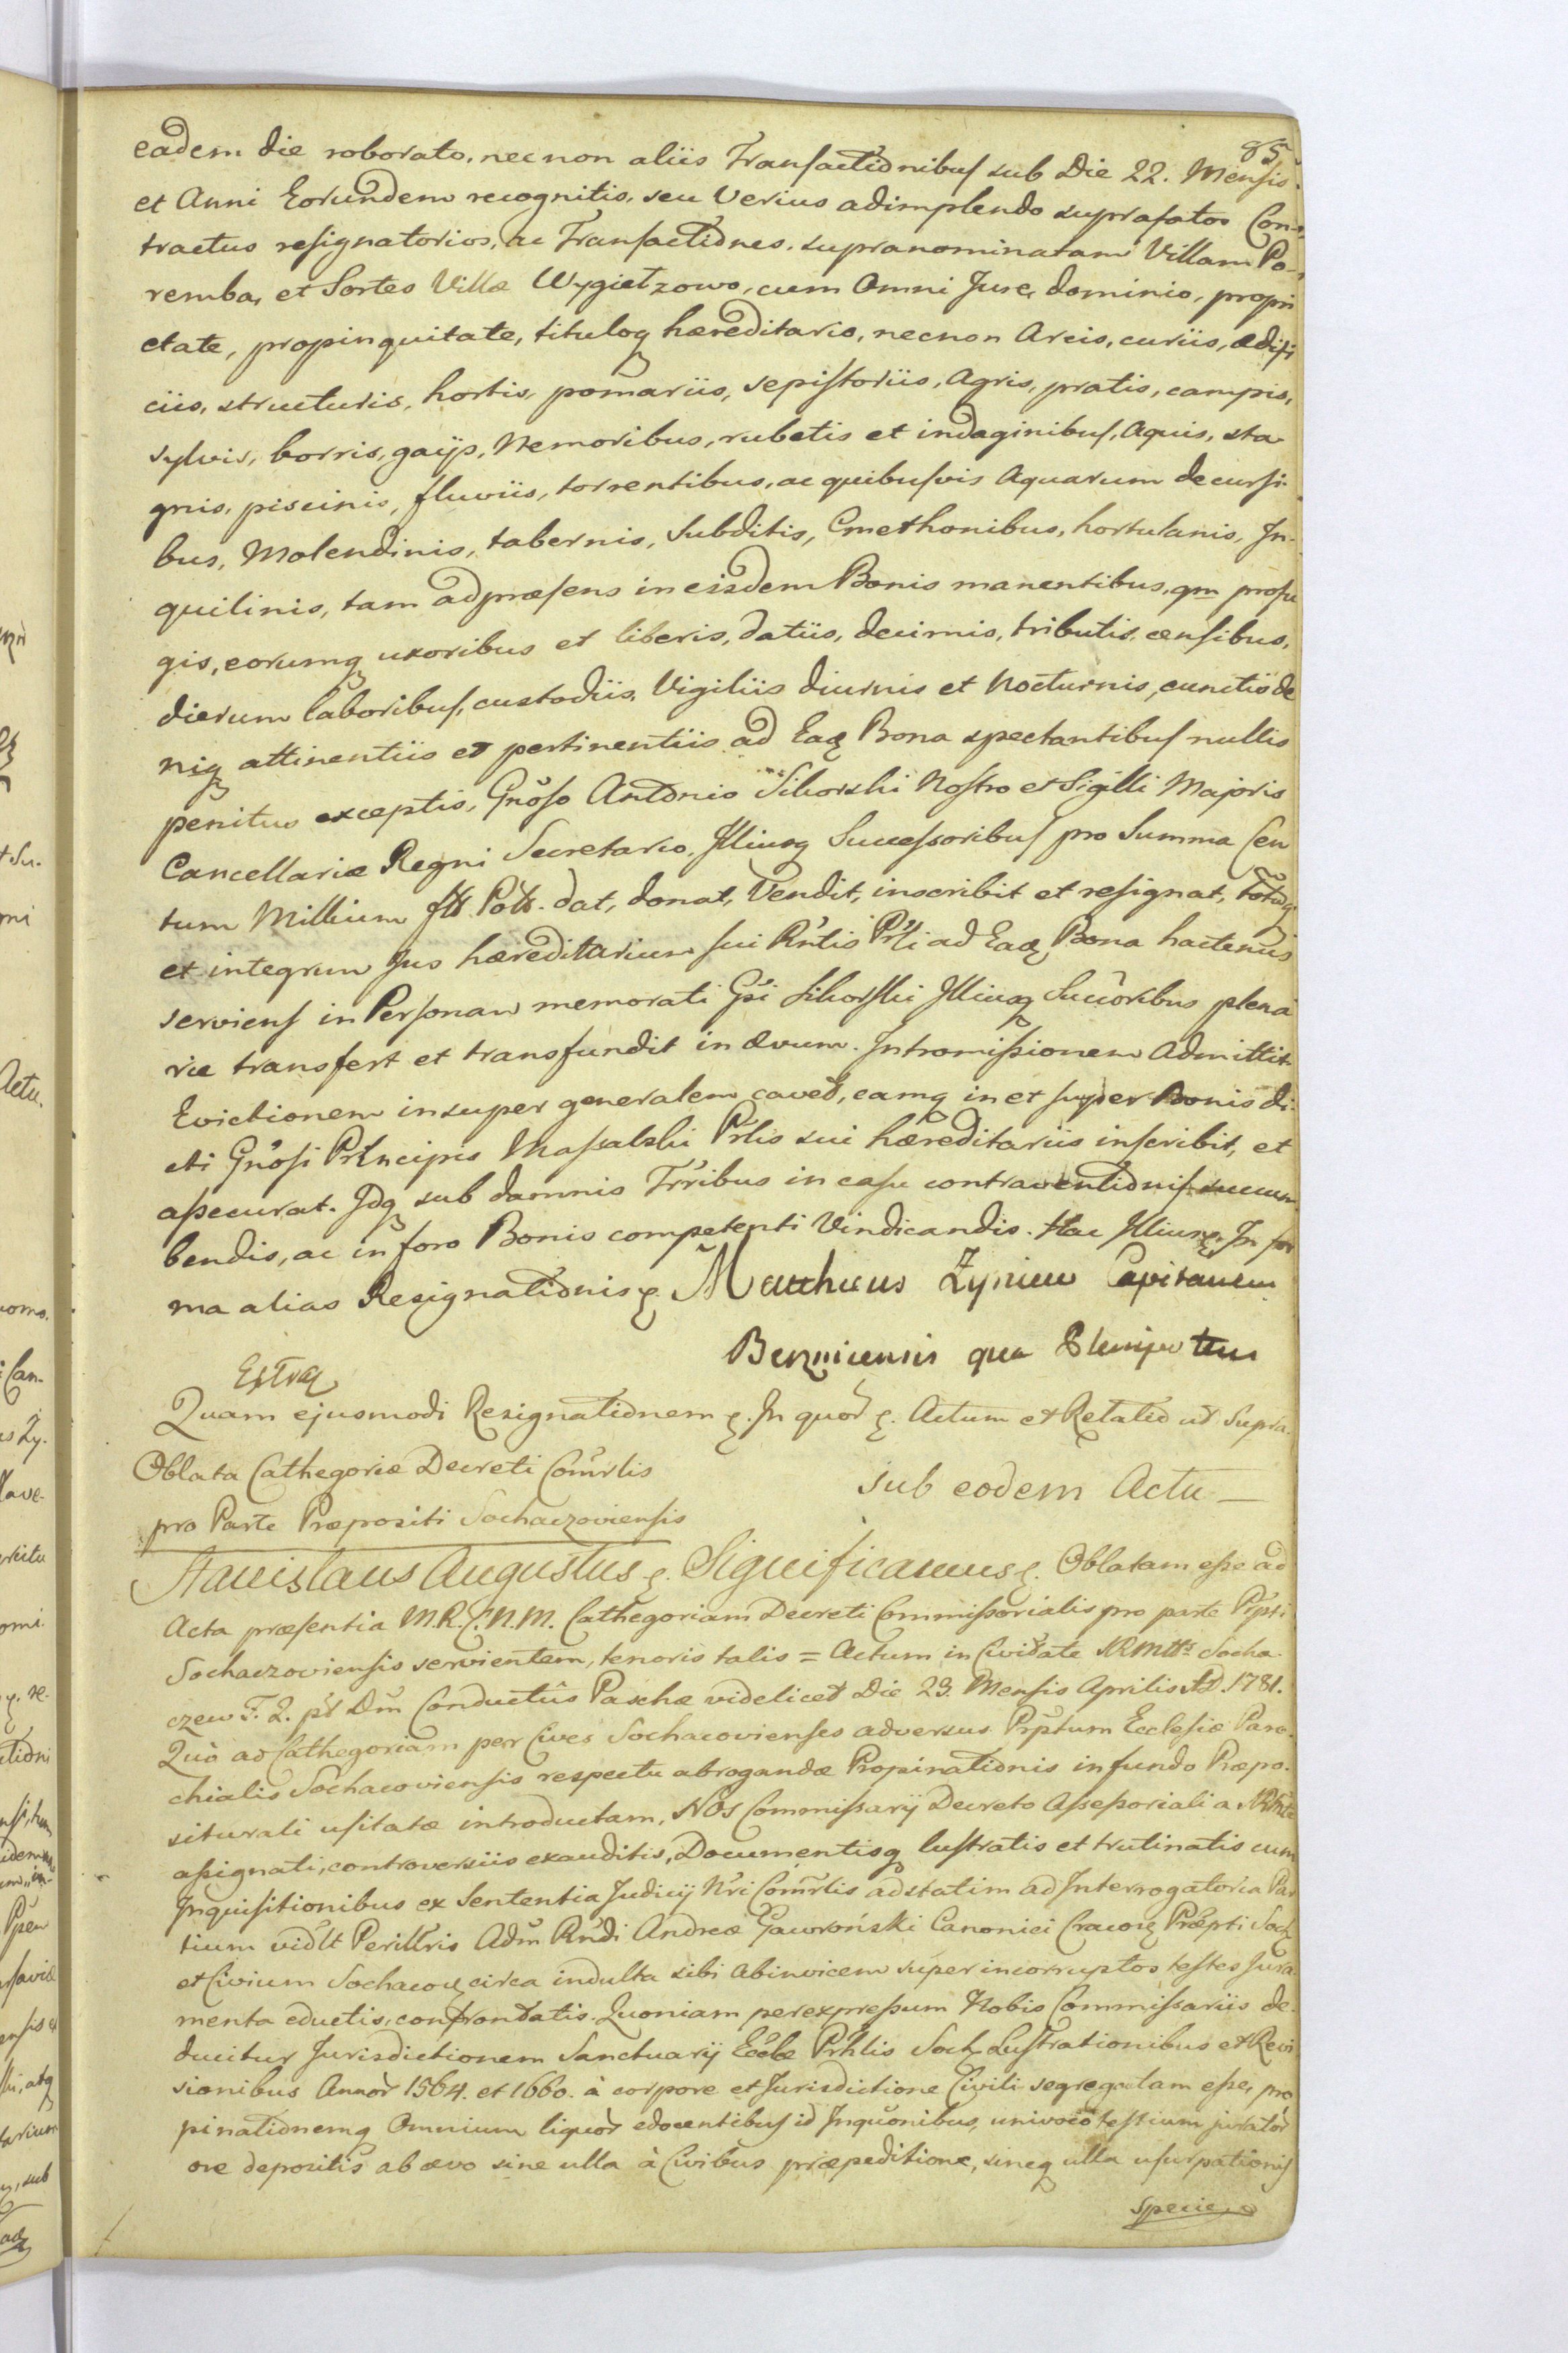 85
eadem die roborato, necnon aliis Transactionibus sub Die 22. Mensis
et Anni Eorundem recognitis, seu Verius adimplendo suprafatos Con-
tractus resignatorios, ac Transactiones, supranominatam Villam Po-
remba, et Sortes Villæ Wygiełzowo, cum Omni Jure, dominio, propri
etate, propinquitate, tituloq hæreditario, necnon Areis, curiis, ædifi
ciis, structuris, hortis, pomariis, sepistoriis, Agris, pratis, campis,
sylvis, borris, gaijs, Nemoribus, rubetis et indaginibus, Aquis, sta
gnis, piscinis, fluviis, torrentibus, ac quibusvis Aquarum decursi-
bus, Molendinis, tabernis, Subditis, Cmethonibus, hortulanis, In-
quilinis, tam ad præsens in eisdem Bonis manentibus, qm profu
gis, eorumq uxoribus et liberis, datiis, decimis, tributis, censibus,
dierum laboribus, custodiis, Vigiliis diurnis et Nocturnis, cunctis de
niq attinentiis et pertinentiis ad Eaq Bona spectantibus nullis
penitus exceptis, Gnoso Antonio Sikorski Nostro et Sigilli Majoris
Cancellariæ Regni Secretario, Illiusq Successoribus pro Summa Cen
tum Millium flls Polls. dat, donat, Vendit, inscribit et resignat, totumq
et integrum Jus hæreditarium sui Rntis Prli ad Eaq Bona hactenus
serviens in Personam memorati Gsi Sikorski Illiusq Succoribus plena
rie transfert et transfundit in ævum. Intromissionem Admittit
Evictionem insuper generalem cavet, eamq in et super Bonis di-
cti Gnosi Principis Massalski Prlis sui hæreditariis inscribit, et
assecurat. Idq sub damnis Trribus in casu contraventionis succum
bendis, ac in foro Bonis competenti Vindicandis. Hac Illius In for
ma alias Resignationis Mathæus Zyniew Capitaneus
Berznicensis qua Plenipotens
Extraq
Quam ejusmodi Resignationem In quor Actum et Relatio ut Supra.
Oblata Cathegoriæ Decreti Comrlis
pro Parte Præpositi Sochaczoviensis
sub eodem Actu
Stanislaus Augustus Significamus Oblatam esse ad
Acta præsentia M.R.C.N.M. Cathegoriam Decreti Commissorialis pro parte Prpti
Sochaczoviensis servientem, tenoris talis = Actum in Civitate NRMtts Socha-
czew F. 2. pt Dm Conductus Paschæ videlicet Die 23. Mensis Aprilis AD. 1781.
Quò ad Cathegoriam per Cives Sochacovienses adversus Prptum Ecclesiæ Paro-
chialis Sochacoviensis respectu abrogandæ Propinationis in fundo Præpo-
siturali usitatæ introductam, Nos Commissarij Decreto Assessoriali a
assignati, controversiis exauditis, Documentisq lustratis et trutinatis cum
Inquisitionibus ex Sententia Judicij Nri Comrlis adstatim ad Interrogatoria Par
tium vidlt Perillris Adm Rndi Andreæ Gaworoński Canonici Cracov Præpti Soch
et Civium Sochacov circa indulta sibi abinvicem super incorruptos testes Jura
menta eductis, confrontatis. Quoniam per expressum Nobis Commissariis de-
ducitur Jurisdictionem Sanctuarij Eccle Prhlis Soch Lustrationibus et Revi
sionibus Annor 1564. et 1660. à corpore et Jurisdictione Civili segregatam esse, pro
pinationemq Omnium liquor edocentibus id Inquonibus, univoco testium jurator
ore depositis ab ævo sine ulla à Civibus præpeditione, sineq ulla usurpationis
specie